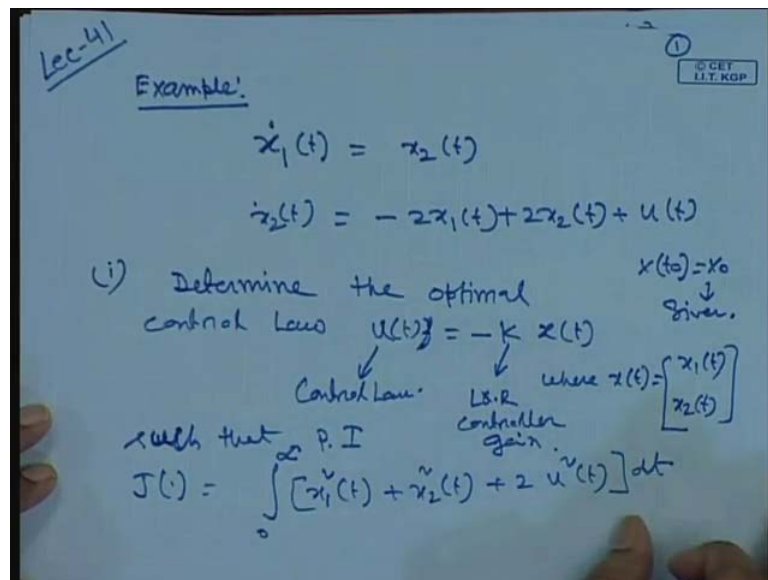 Lec-41
①
© CET
I.I.T. KGP
Example:
ẋ₁(t) = x₂(t)
ẋ₂(t) = - 2x₁(t)+2x₂(t)+ u(t)
(i) Determine the optimal
x(t₀)=x₀
↓
Given.
control Law u(t) = -K x(t)
Control Law.
L.Q.R
controller
gain.
where x(t)=[x₁(t)
x₂(t)]
such that P.I
J(·) = ∫₀^∞ [x₁²(t) + x₂²(t) + 2 u²(t)] dt